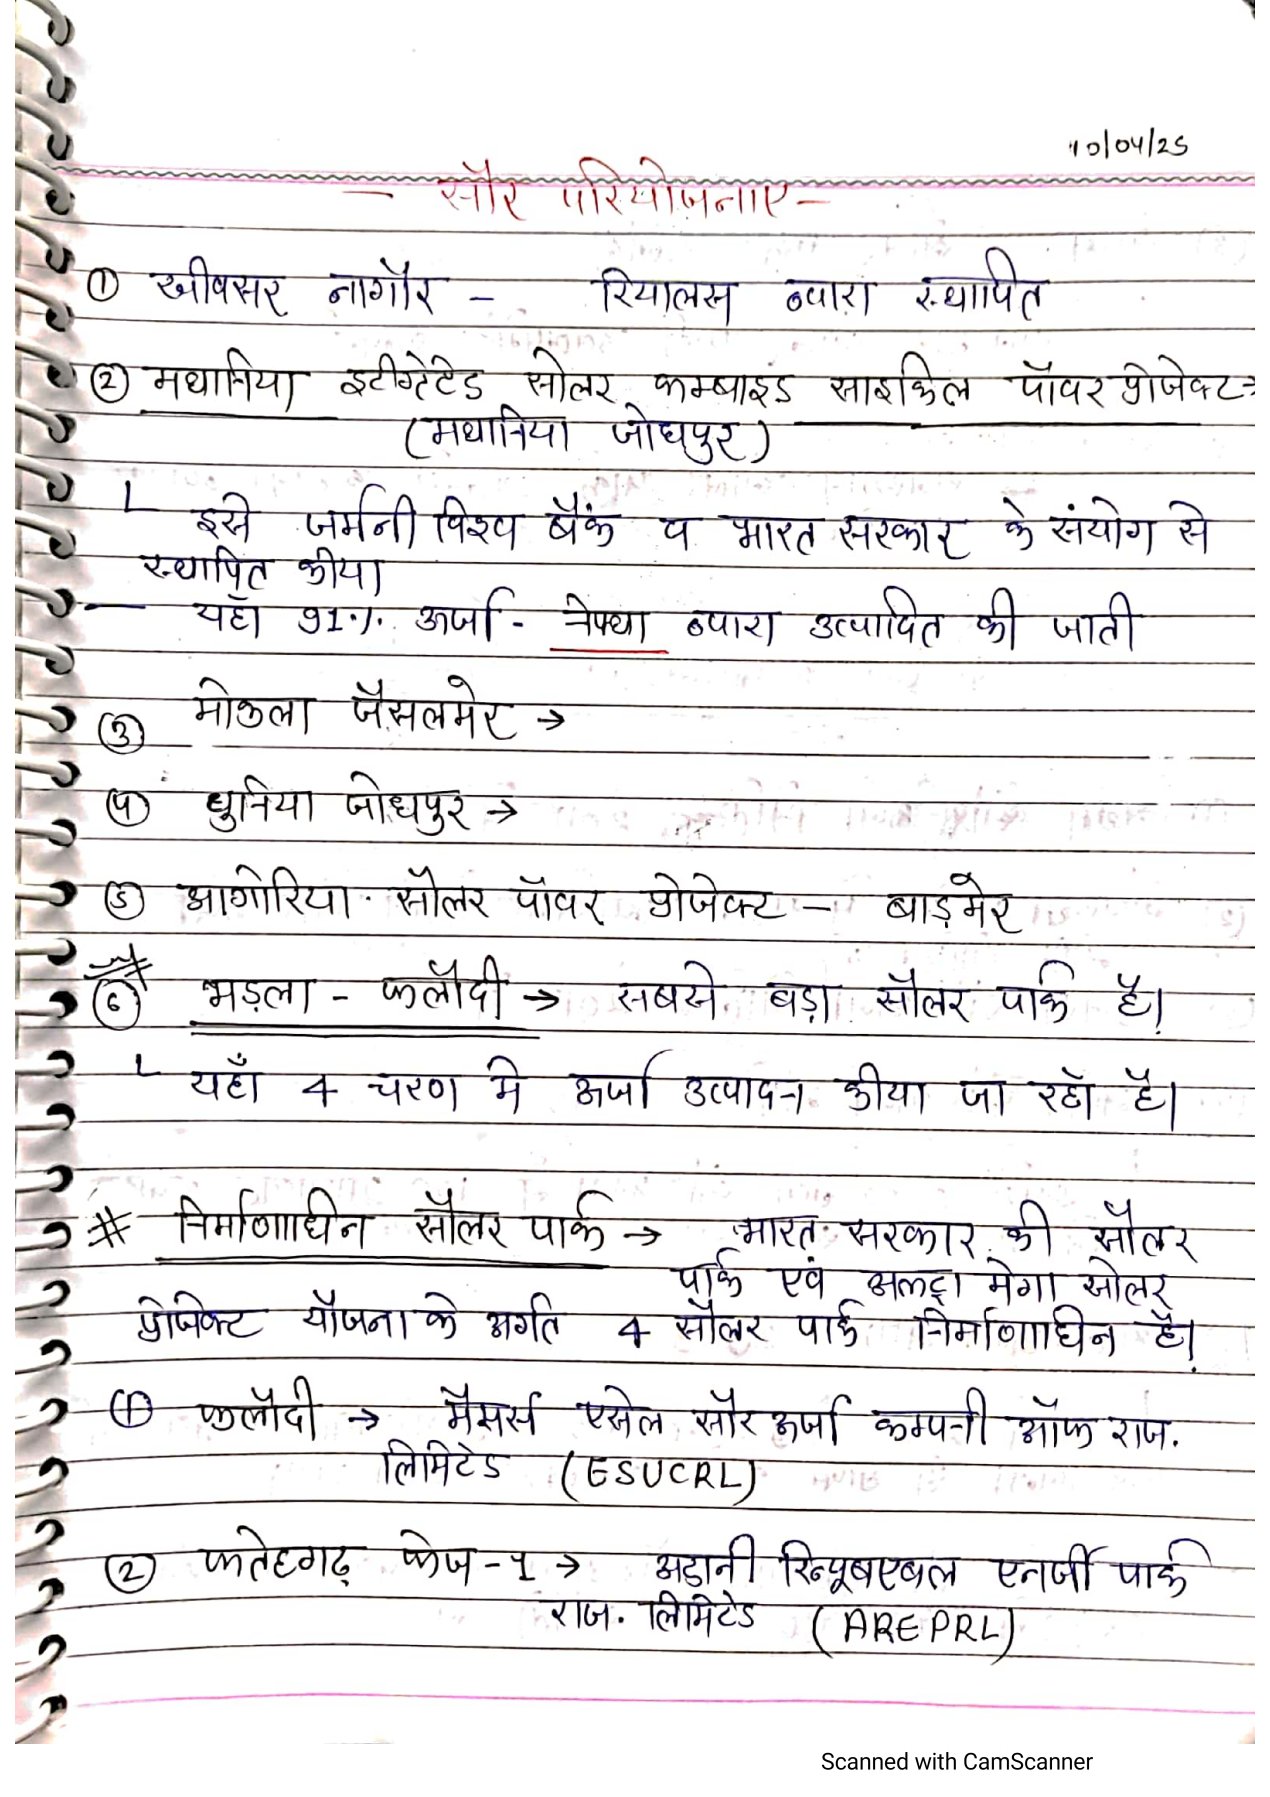 10/04/25
- सौर परियोजनाए -
① खीवसर नागौर - रियालस द्वारा स्थापित
② मथानिया इटीग्रेटेड सोलर कम्बाइड साइकिल पॉवर प्रोजेक्ट→
(मथानिया जोधपुर)
└ इसे जर्मनी विश्व बैंक व भारत सरकार के संयोग से
स्थापित कीया
— यहाँ 91% ऊर्जा - नेफ्था द्वारा उत्पादित की जाती
③ मोकला जैसलमेर →
④ धुनिया जोधपुर →
⑤ आगोरिया सौलर पॉवर प्रोजेक्ट - बाड़मेर
⑥ भड़ला - फलौदी → सबसे बड़ा सौलर पार्क है।
└ यहाँ 4 चरण मे ऊर्जा उत्पादन कीया जा रहाॅ है।
# निर्माणाधिन सौलर पार्क → भारत सरकार की सौलर
पार्क एवं अलट्रा मेगा सोलर
प्रोजेक्ट यौजना के अर्गत 4 सौलर पार्क निर्माणाधिन है।
① फलौदी → मैसर्स एसेल सौर ऊर्जा कम्पनी ऑफ राज.
लिमिटेड (ESUCRL)
② फतेहगढ़ फेज-1 → अडानी रिन्यूबएबल एनर्जी पार्क
राज. लिमिटेड (AREPRL)
Scanned with CamScanner